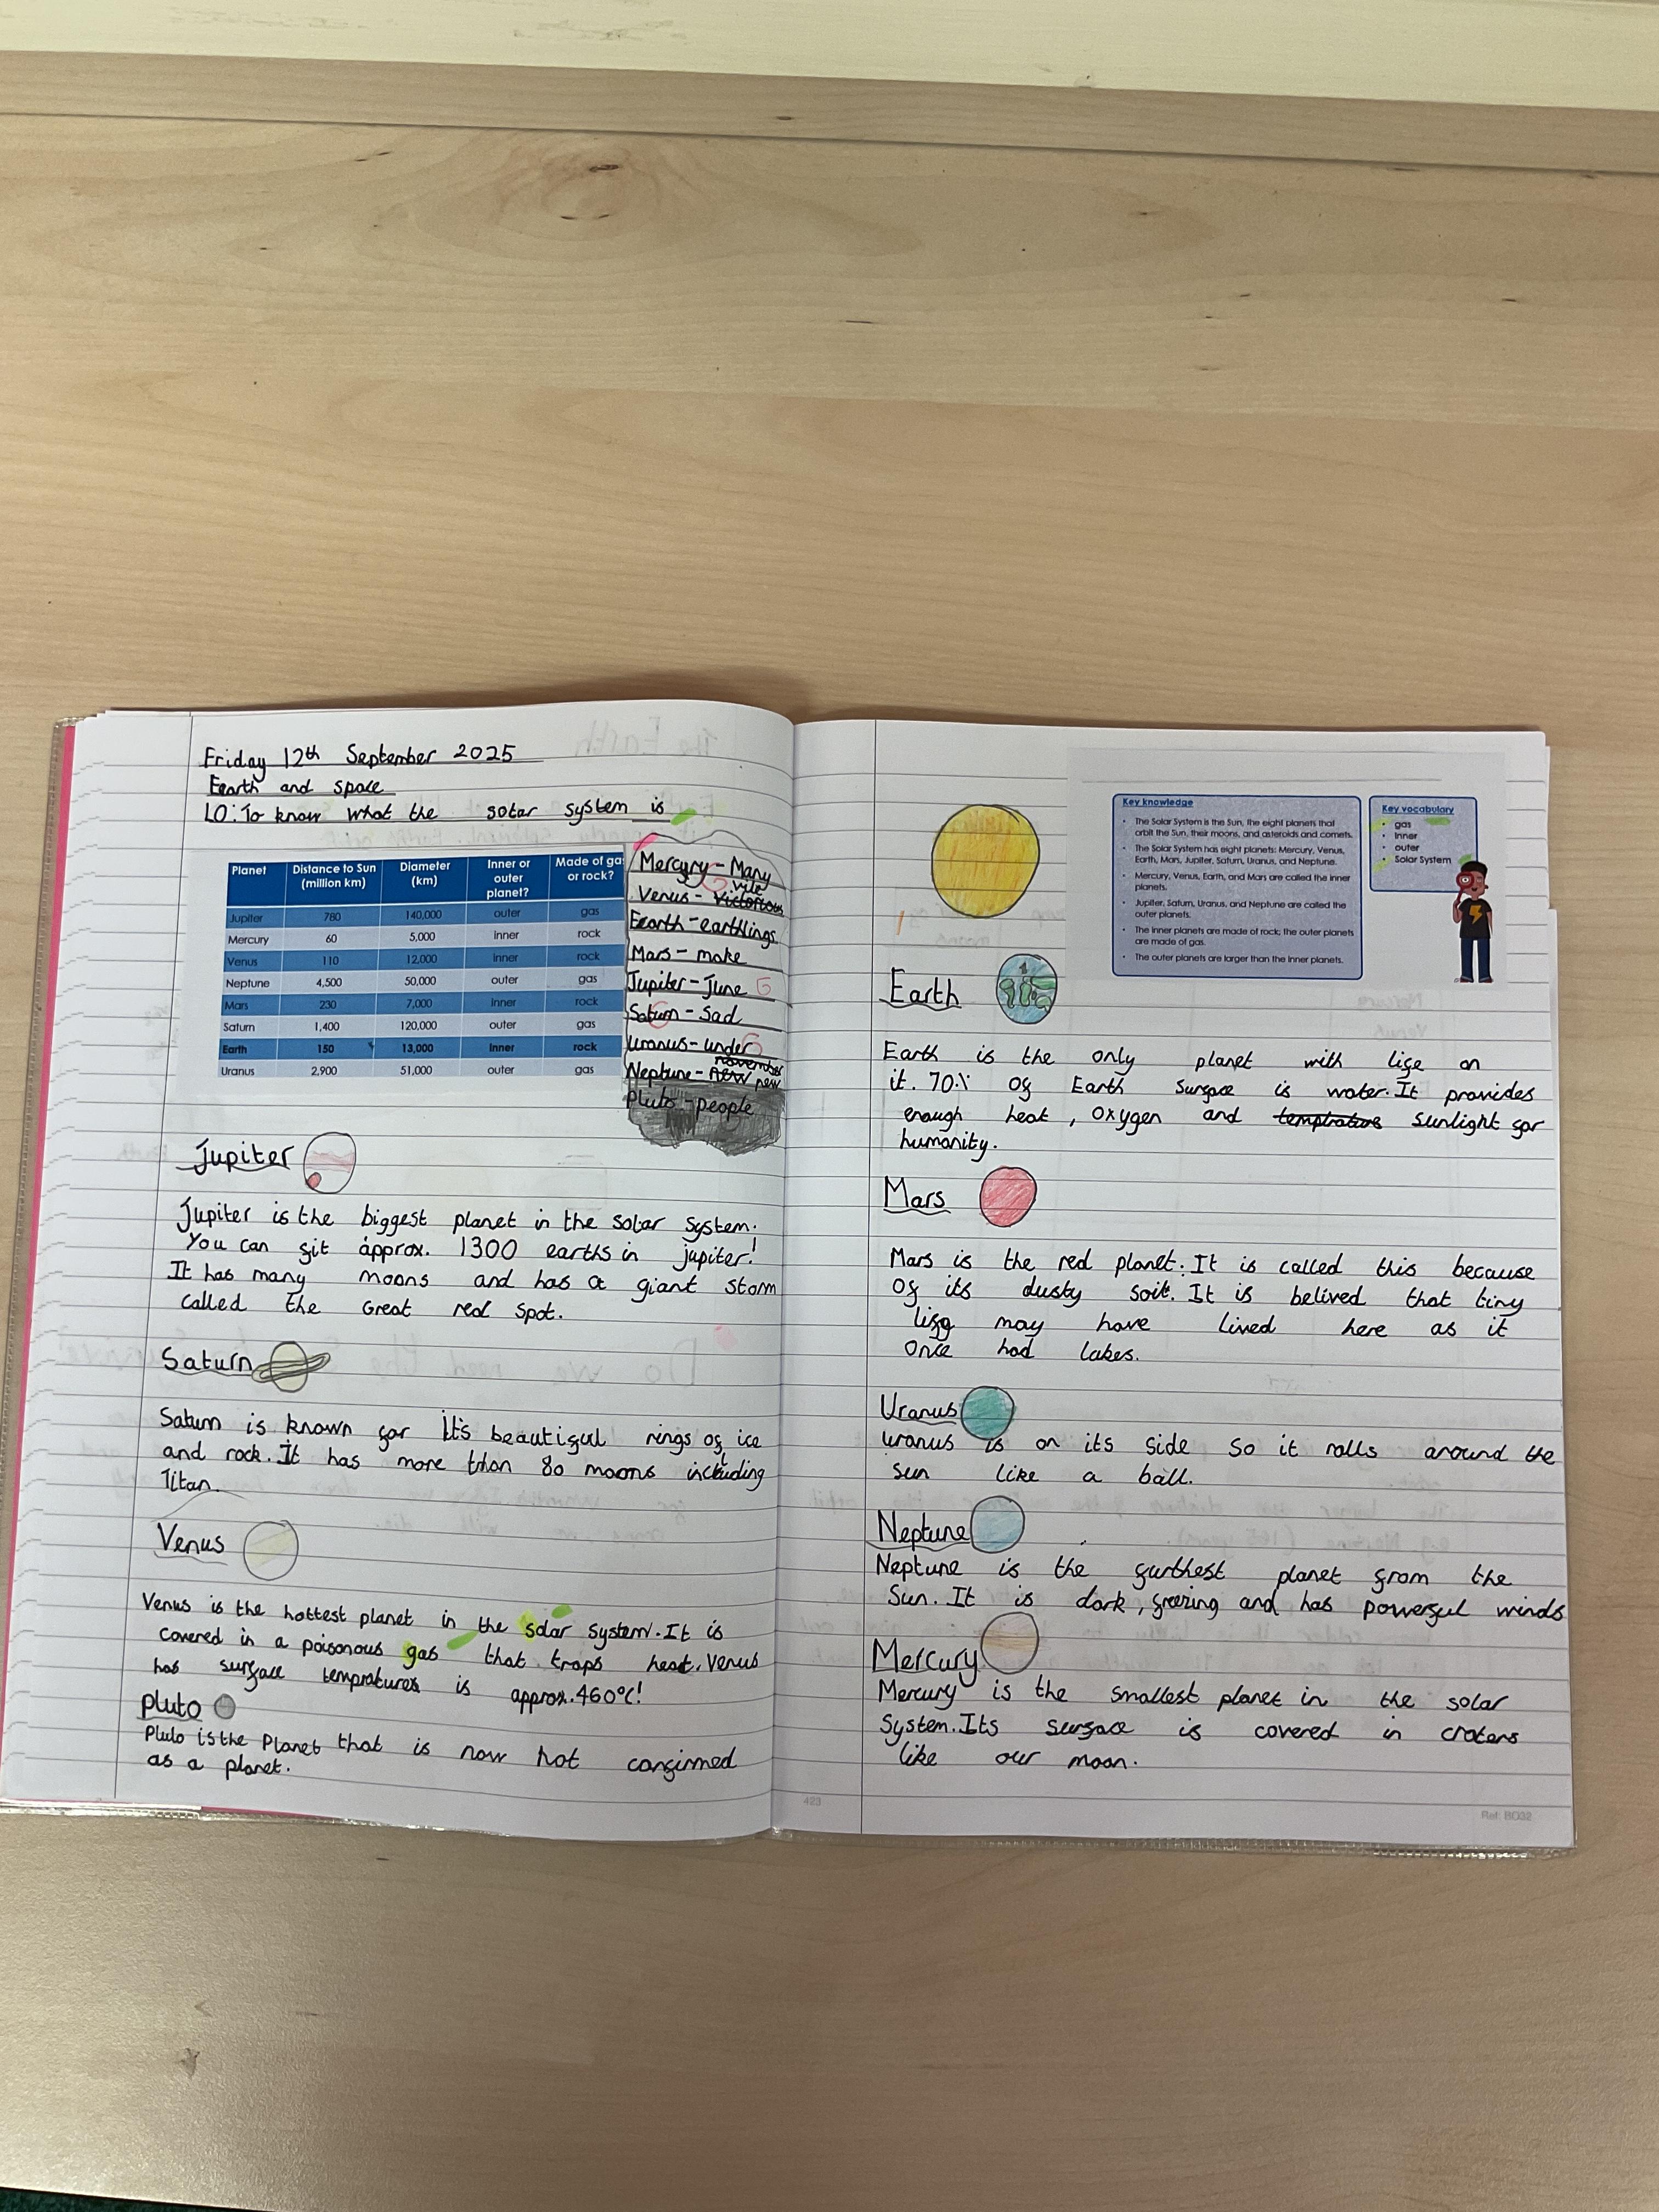 Friday 12th September 2025
Earth and space
LO: To know what the solar system is
Planet Distance to Sun (million km) Diameter (km) Inner or outer planet? Made of gas or rock?
Jupiter 780 140,000 outer gas
Mercury 60 5,000 inner rock
Venus 110 12,000 inner rock
Neptune 4,500 50,000 outer gas
Mars 230 7,000 inner rock
Saturn 1,400 120,000 outer gas
Earth 150 13,000 inner rock
Uranus 2,900 51,000 outer gas
Mercury - Many
vile
Venus - Victorious
Earth - earthlings
Mars - make
Jupiter - June
Saturn - Sad
Uranus - under
november
Neptune - new new
Pluto - people
Jupiter
Jupiter is the biggest planet in the solar system.
You can fit approx. 1300 earths in jupiter!
It has many moons and has a giant storm
called the Great red spot.
Saturn
Saturn is known for it's beautiful rings of ice
and rock. It has more than 80 moons including
Titan.
Venus
Venus is the hottest planet in the solar system. It is
covered in a poisonous gas that traps heat. Venus
has surface tempratures is approx. 460°C!
Pluto
Pluto is the Planet that is now not confirmed
as a planet.
Key knowledge
• The Solar System is the Sun, the eight planets that
orbit the Sun, their moons, and asteroids and comets.
• The Solar System has eight planets: Mercury, Venus,
Earth, Mars, Jupiter, Saturn, Uranus, and Neptune.
• Mercury, Venus, Earth, and Mars are called the inner
planets.
• Jupiter, Saturn, Uranus, and Neptune are called the
outer planets.
• The inner planets are made of rock; the outer planets
are made of gas.
• The outer planets are larger than the inner planets.
Key vocabulary
• gas
• inner
• outer
• Solar System
Earth
Earth is the only planet with life on
it. 70% of Earth surface is water. It provides
enough heat, oxygen and temprature sunlight for
humanity.
Mars
Mars is the red planet. It is called this because
of its dusty soil. It is belived that tiny
life may have lived here as it
once had lakes.
Uranus
Uranus is on its side so it rolls around the
sun like a ball.
Neptune
Neptune is the furthest planet from the
Sun. It is dark, freezing and has powerful winds
Mercury
Mercury is the smallest planet in the solar
System. Its surface is covered in craters
like our moon.
423
Ref: BD32